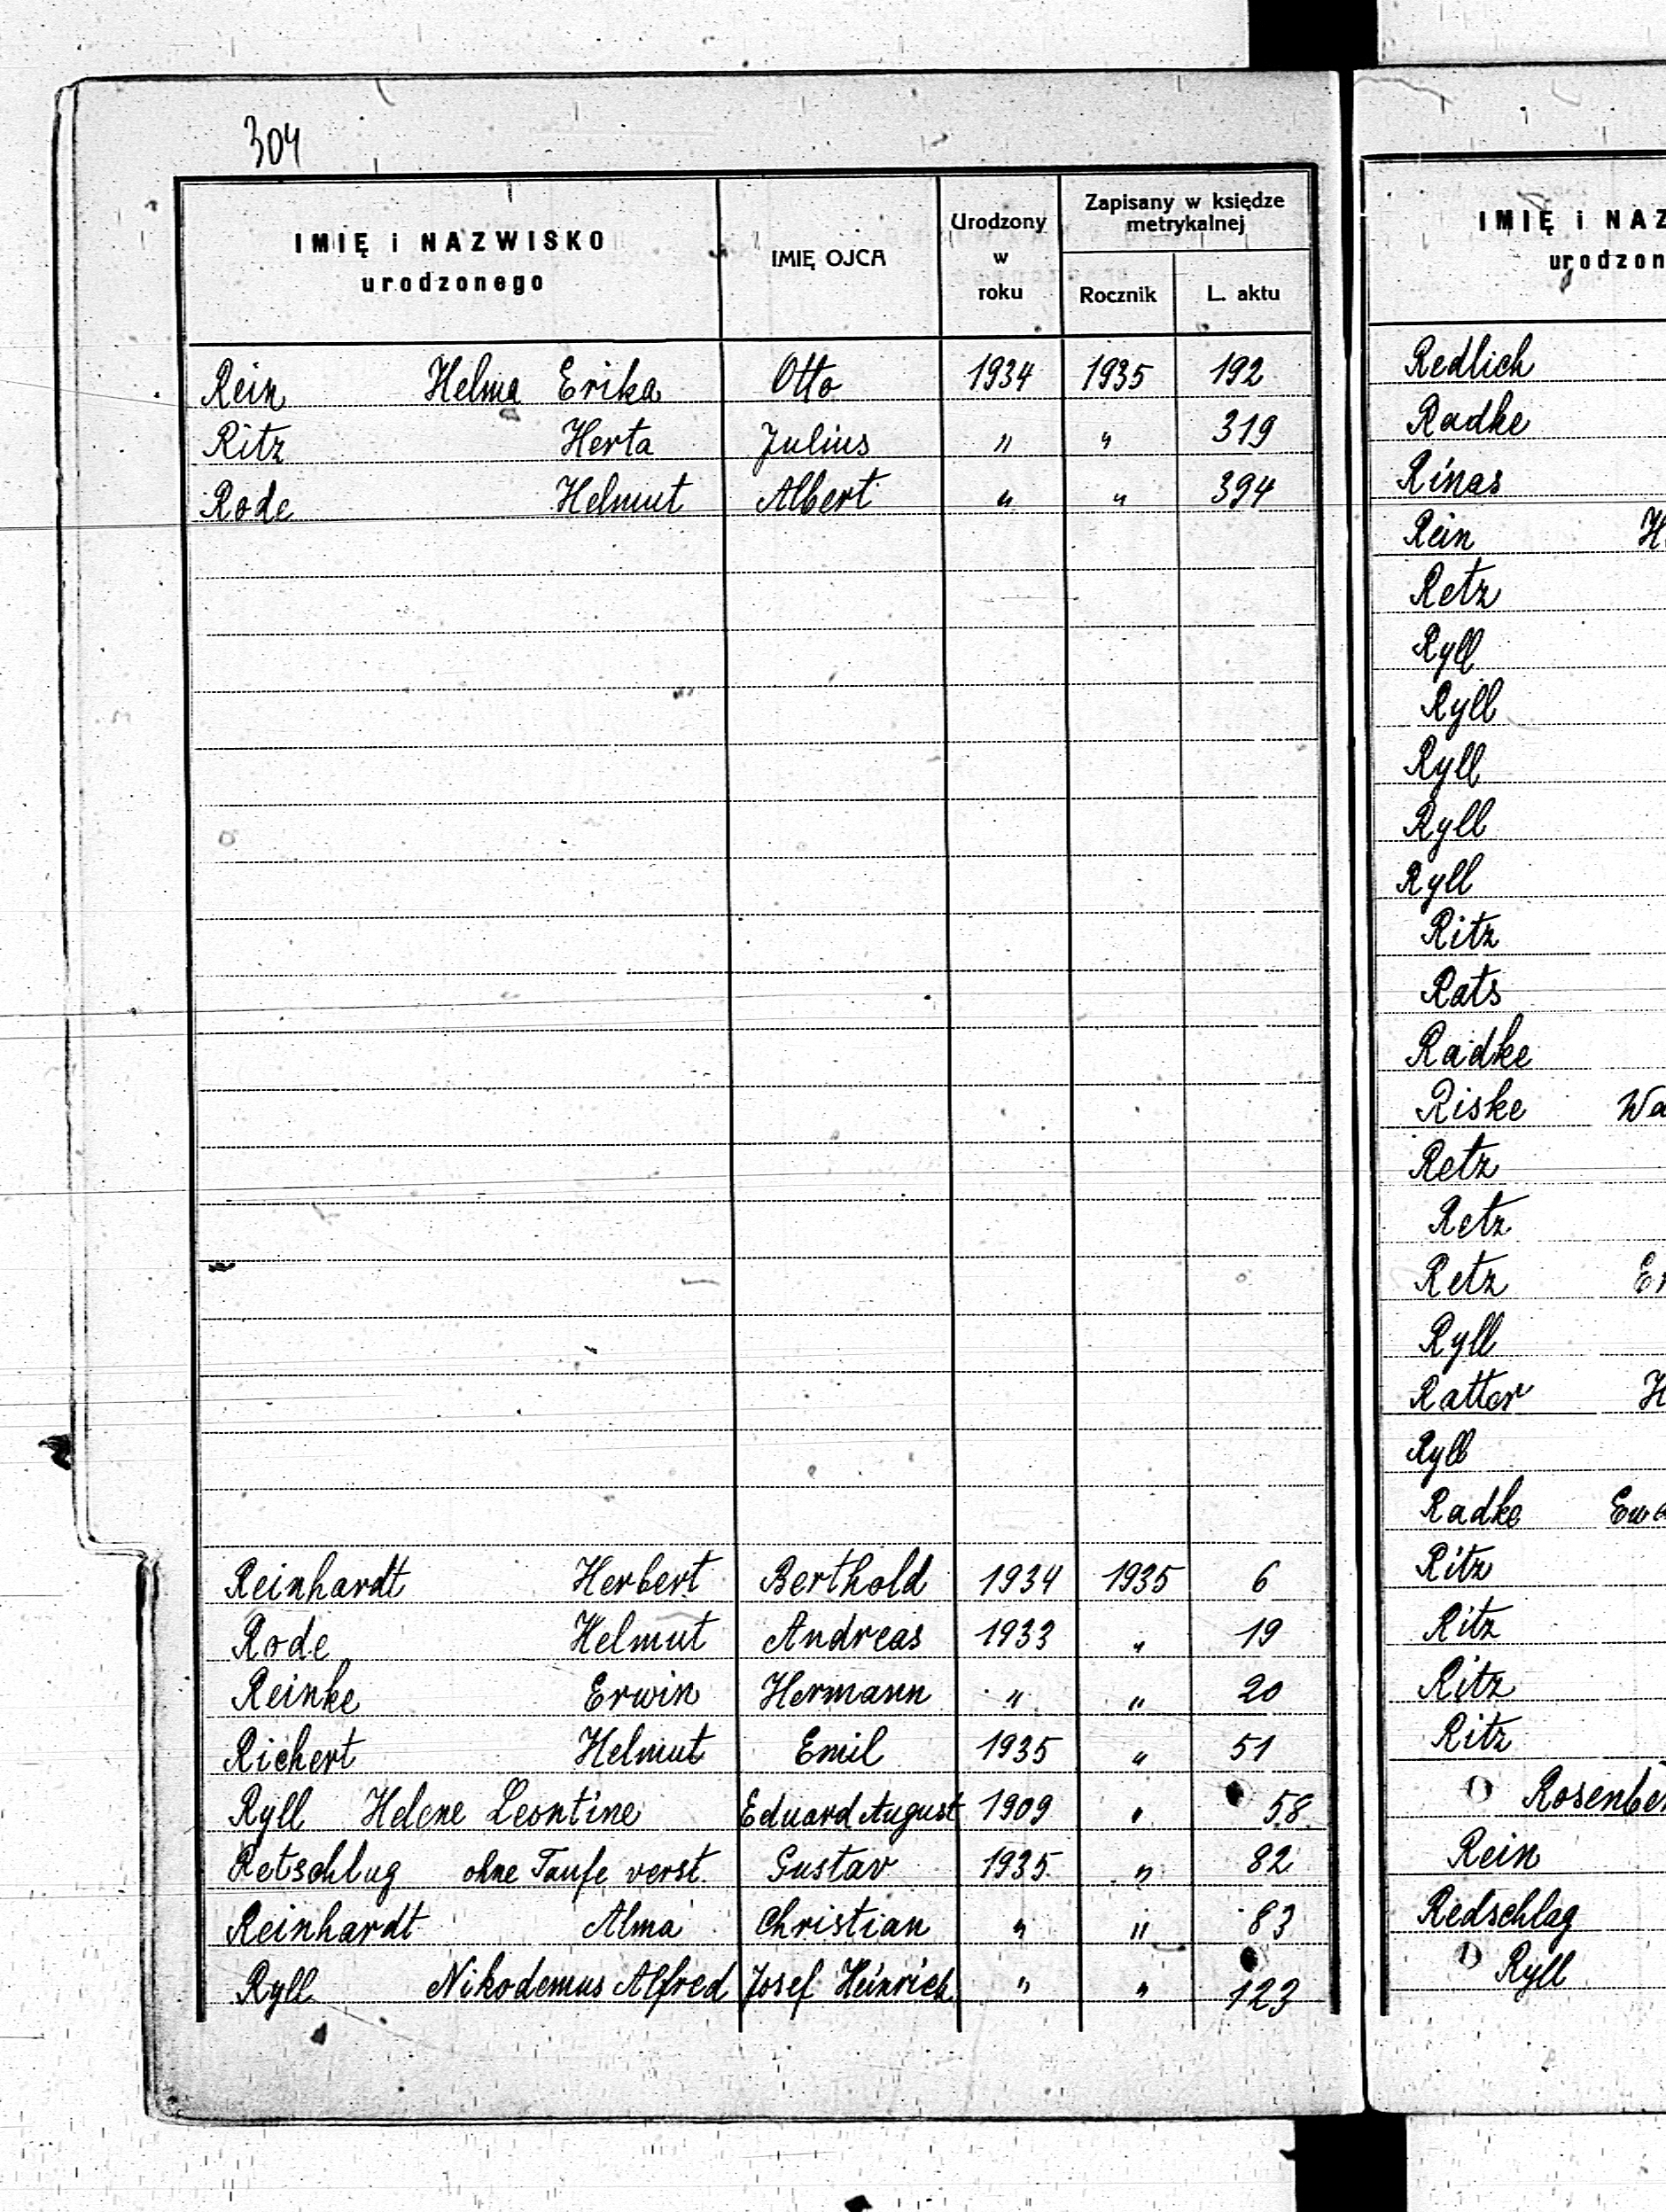 304
IMIĘ i NAZWISKO
urodzonego
IMIĘ OJCA
Urodzony
w
roku
Zapisany w księdze
metrykalnej
Rocznik
L. aktu
Rein Helma Erika Otto 1934 1935 192
Ritz Herta Julius " " 319
Rode Helmut Albert " " 394
Reinhardt Herbert Berthold 1934 1935 6
Rode Helmut Andreas 1933 " 19
Reinke Erwin Hermann " " 20
Richert Helmut Emil 1935 " 51
Ryll Helene Leontine Eduard August 1909 " 58
Retschlug ohne Taufe verst. Gustav 1935 " 82
Reinhardt Alma Christian " " 83
Ryll Nikodemus Alfred Josef Heinrich " " 123
IMIĘ i NAZ
urodzon
Redlich
Radke
Rinas
Rein H
Retz
Ryll
Ryll
Ryll
Ryll
Ryll
Ritz
Rats
Radke
Riske Wa
Retz
Retz
Retz Er
Ryll
Ratter H
Ryll
Radke Ewa
Ritz
Ritz
Ritz
Ritz
Rosenber
Rein
Redschlag
Ryll